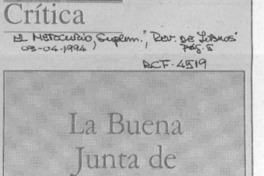 Crítica
EL MERCURIO, Suplem., "REV. DE LIBROS"
03-04-1994, Pág. 5
ACF-4519
La Buena
Junta de